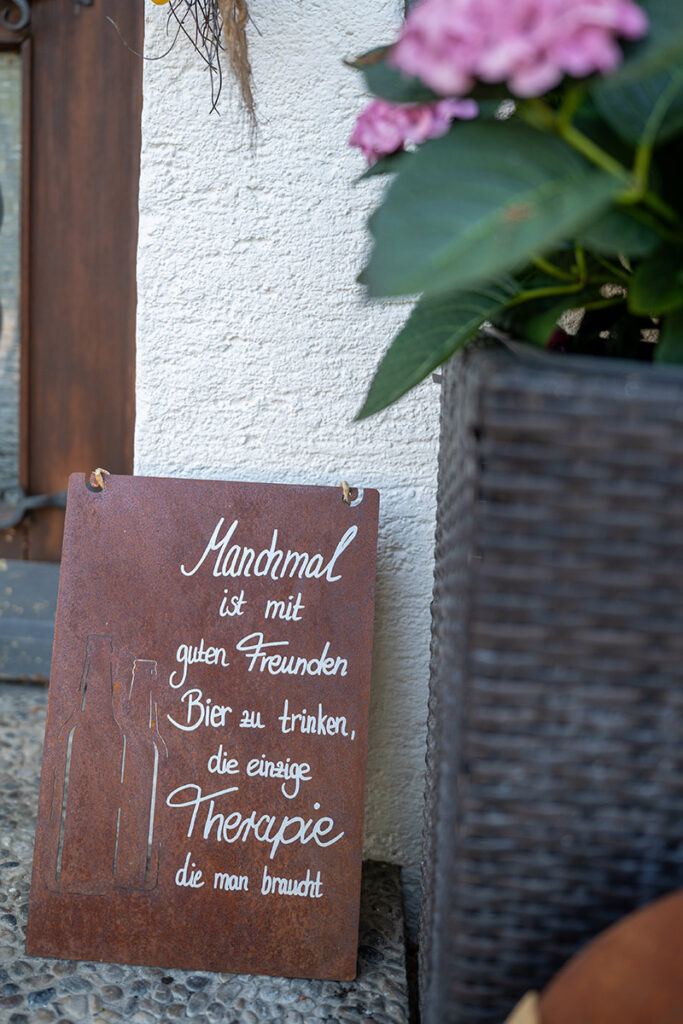 Manchmal
ist mit
guten Freunden
Bier zu trinken,
die einzige
Therapie
die man braucht